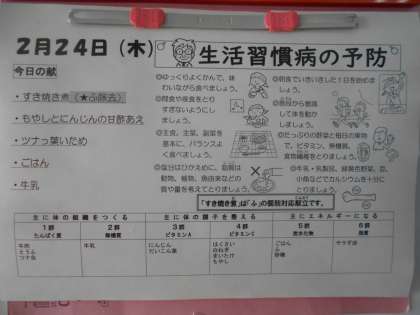 2月24日（木）
生活習慣病の予防
今日の献
・すき焼き煮（★ふ除去）
・もやしとにんじんの甘酢あえ
・ツナっ葉いため
・ごはん
・牛乳
◎ゆっくりよくかんで、味
わいながら食べましょう。
◎間食や夜食をとり
すぎないようにしま
しょう。
◎主食、主菜、副菜を
基本に、バランスよ
く食べましょう。
◎塩分はひかえめに、脂質は
動物、植物、魚由来などの
質や量を考えてとりましょう。
◎朝食でいきいきした1日を始めま
しょう。
◎普段から意識
して体を動か
しましょう。
◎たっぷりの野菜と毎日の果物
で、ビタミン、無機質、
食物繊維をとりましょう。
◎牛乳・乳製品、緑黄色野菜、豆、
小魚などでカルシウムを十分に
とりましょう。
「すき焼き煮」は「ふ」の除去対応献立です。
主に体の組織をつくる
主に体の調子を整える
主にエネルギーになる
1群
たんぱく質
2群
無機質
3群
ビタミンA
4群
ビタミンC
5群
炭水化物
6群
脂質
牛肉
とうふ
ツナ缶
牛乳
にんじん
だいこん葉
はくさい
白ねぎ
まいたけ
もやし
ごはん
ふ
砂糖
サラダ油